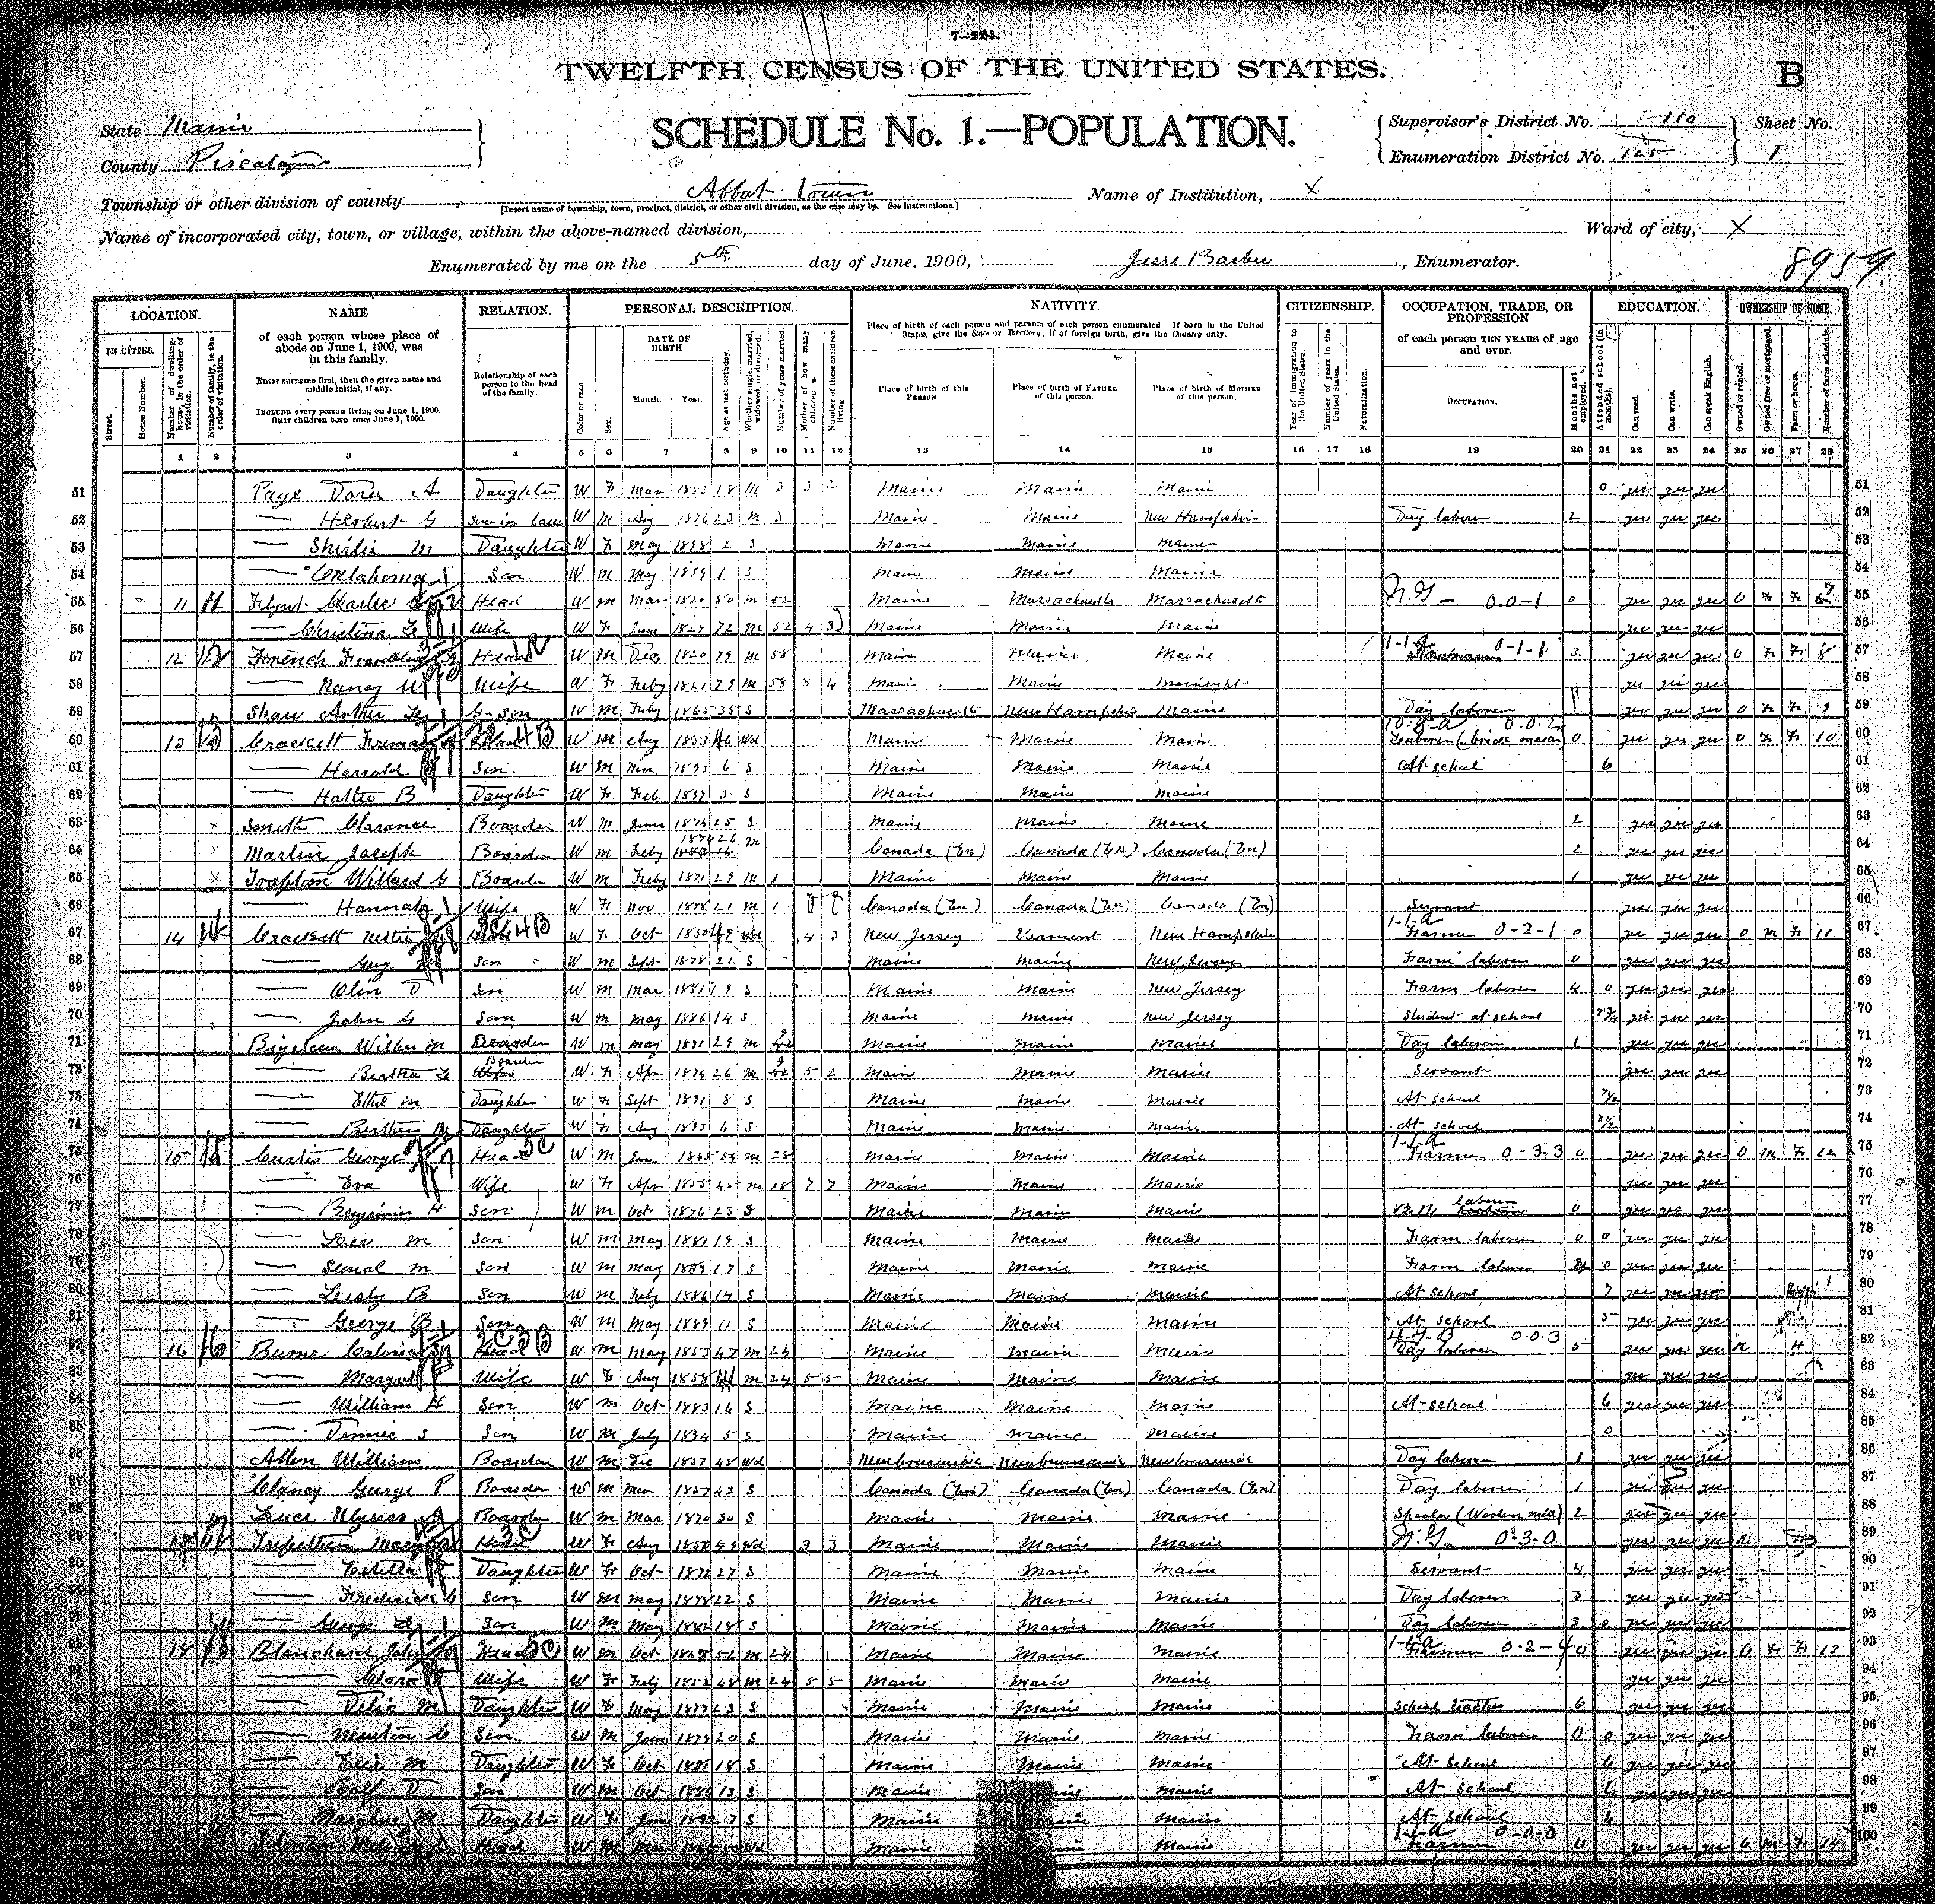 7—224.
TWELFTH CENSUS OF THE UNITED STATES.
B
State Maine
SCHEDULE No. 1.—POPULATION.
Supervisor's District No. 110 Sheet No.
County Piscataquis
Enumeration District No. 125 1
Township or other division of county Abbot Town Name of Institution, X
[Insert name of township, town, precinct, district, or other civil division, as the case may be. See instructions.]
Name of incorporated city, town, or village, within the above-named division, Ward of city, X
Enumerated by me on the 5th day of June, 1900, Jesse Barber, Enumerator.
8959
LOCATION. NAME RELATION. PERSONAL DESCRIPTION. NATIVITY. CITIZENSHIP. OCCUPATION, TRADE, OR PROFESSION EDUCATION. OWNERSHIP OF HOME.
IN CITIES. Street. House Number. Number of dwelling-house, in the order of visitation. Number of family, in the order of visitation.
of each person whose place of abode on June 1, 1900, was in this family.
Enter surname first, then the given name and middle initial, if any.
INCLUDE every person living on June 1, 1900. OMIT children born since June 1, 1900.
Relationship of each person to the head of the family.
Color or race. Sex. DATE OF BIRTH. Month. Year. Age at last birthday. Whether single, married, widowed, or divorced. Number of years married. Mother of how many children. Number of these children living.
Place of birth of each person and parents of each person enumerated. If born in the United States, give the State or Territory; if of foreign birth, give the Country only.
Place of birth of this PERSON. Place of birth of FATHER of this person. Place of birth of MOTHER of this person.
Year of immigration to the United States. Number of years in the United States. Naturalization.
of each person TEN YEARS of age and over. OCCUPATION. Months not employed.
Attended school (in months). Can read. Can write. Can speak English. Owned or rented. Owned free or mortgaged. Farm or house. Number of farm schedule.
1 2 3 4 5 6 7 8 9 10 11 12 13 14 15 16 17 18 19 20 21 22 23 24 25 26 27 28
51 Page Dora A Daughter W F Mar 1882 18 M 3 3 2 Maine Maine Maine 0 yes yes yes 51
52 — Herbert G Son in law W M Aug 1876 23 M 3 Maine Maine New Hampshire Day laborer 2 yes yes yes 52
53 — M Daughter W F May 1898 2 S Maine Maine Maine 53
54 — Son W M May 1899 1 S Maine Maine Maine 54
55 11 11 Charles Head W M Mar 1820 80 M 52 Maine Massachusetts Massachusetts N.G— 0-0-1 0 yes yes yes O F F 7 55
56 — Christina Wife W F June 1827 72 M 52 4 3 Maine Maine Maine yes yes yes 56
57 12 12 French Head W M Dec 1820 79 M 58 Maine Maine Maine 1-1-a 0-1-1 3 yes yes yes O F F 8 57
58 — Nancy Wife W F Feby 1821 79 M 58 5 4 Maine Maine yes yes yes 58
59 Shaw Arthur G-son W M Feby 1865 35 S Massachusetts New Hampshire Maine Day laborer yes yes yes O F F 9 59
60 13 13 Crackett W M Aug 1853 46 Wd Maine Maine Maine 0-0-2 Laborer (brick mason) 0 yes yes yes O F F 10 60
61 — Harrold Son W M Nov 1893 6 S Maine Maine Maine At school 6 61
62 — Hattie B Daughter W F Feb 1897 3 S Maine Maine Maine 62
63 Smith Clarance Boarder W M June 1874 25 S Maine Maine Maine 2 yes yes yes 63
64 Martin Joseph Boarder W M Feby 1874 26 M Canada (En) Canada (En) Canada (En) 2 yes yes yes 64
65 Willard G Boarder W M Feby 1871 29 M 1 Maine Maine Maine 1 yes yes yes 65
66 — Hannah Wife W F Nov 1878 21 M 1 Canada (En) Canada (En) Canada (En) Servant yes yes yes 66
67 14 14 Crackett Nettie W F Oct 1850 49 Wd 4 3 New Jersey Vermont New Hampshire 1-1-a Farmer 0-2-1 0 yes yes yes O M F 11 67
68 — Guy Son W M Sept 1878 21 S Maine Maine New Jersey Farm laborer 0 yes yes yes 68
69 — Olin D Son W M Mar 1881 19 S Maine Maine New Jersey Farm laborer 4 0 yes yes yes 69
70 — John G Son W M May 1886 14 S Maine Maine New Jersey Student at school yes yes yes 70
71 Wilber M Boarder W M May 1871 29 M 9 Maine Maine Maine Day laborer 1 yes yes yes 71
72 — Bertha Boarder W F Apr 1874 26 M 9 5 2 Maine Maine Maine Servant yes yes yes 72
73 — Ethel M Daughter W F Sept 1891 8 S Maine Maine Maine At school 73
74 — Bertha M Daughter W F Aug 1893 6 S Maine Maine Maine At school 74
75 15 15 Curtis George Head W M Jan 1845 M 28 Maine Maine Maine 1-1-a Farmer 0-3-3 0 yes yes yes O M F 12 75
76 — Eva Wife W F Apr 1855 45 M 28 7 7 Maine Maine Maine yes yes yes 76
77 — Benjamin H Son W M Oct 1876 23 S Maine Maine Maine laborer 0 yes yes yes 77
78 — Lee M Son W M May 1881 19 S Maine Maine Maine Farm laborer 0 0 yes yes yes 78
79 — M Son W M May 17 S Maine Maine Maine Farm laborer 0 yes yes yes 79
80 — Lesly B Son W M Feby 1886 14 S Maine Maine Maine At school 7 yes yes yes 80
81 — George B Son W M May 1889 11 S Maine Maine Maine At school 5 yes yes yes 81
82 16 16 Head W M May 1853 47 M 24 Maine Maine Maine 0-0-3 Day laborer 5 yes yes yes R H 82
83 — Margret Wife W F Aug 1858 41 M 24 5 5 Maine Maine Maine yes yes yes 83
84 — William H Son W M Oct 1883 16 S Maine Maine Maine At school 6 yes yes yes 84
85 — S Son W M July 1894 5 S Maine Maine Maine 0 85
86 Allen William Boarder W M Dec Wd Day laborer 1 yes yes yes 86
87 Clancy George P Boarder W M Mar 1857 43 S Canada (En) Canada (En) Canada (En) Day laborer 1 yes yes yes 87
88 Luce Ulysses Boarder W M Mar 1870 30 S Maine Maine Maine Spooler (Woolen mill) 2 yes yes yes 88
89 17 17 Trefethen Mary Head W F Aug 1850 49 Wd 3 3 Maine Maine Maine N.G. 0-3-0 yes yes yes R H 89
90 — Estella Daughter W F Oct 1872 27 S Maine Maine Maine Servant 4 yes yes yes 90
91 — Frederick C Son W M May 1878 22 S Maine Maine Maine Day laborer 3 yes yes yes 91
92 — George Son W M May 1882 18 S Maine Maine Maine Day laborer 3 0 yes yes yes 92
93 18 18 Blanchard John Head W M Oct 1848 M 24 Maine Maine Maine 1-1-a Farmer 0-2-4 0 yes yes yes O F F 13 93
94 — Clara Wife W F July 1852 48 M 24 5 5 Maine Maine Maine yes yes yes 94
95 — M Daughter W F May 1877 23 S Maine Maine Maine School teacher 6 yes yes yes 95
— Newton C Son W M June 1879 20 S Maine Maine Maine Farm laborer 0 0 yes yes yes 96
— M Daughter W F Oct 1881 18 S Maine Maine Maine At School 6 yes yes yes 97
— Ralf D Son W M Oct 1886 13 S Maine Maine At School 6 yes yes yes 98
— M Daughter W F June 1892 7 S Maine Maine At School 6 99
19 Head W M Mar Wd Maine Maine 1-1-a Farmer 0-0-0 0 yes yes yes O M F 14 100